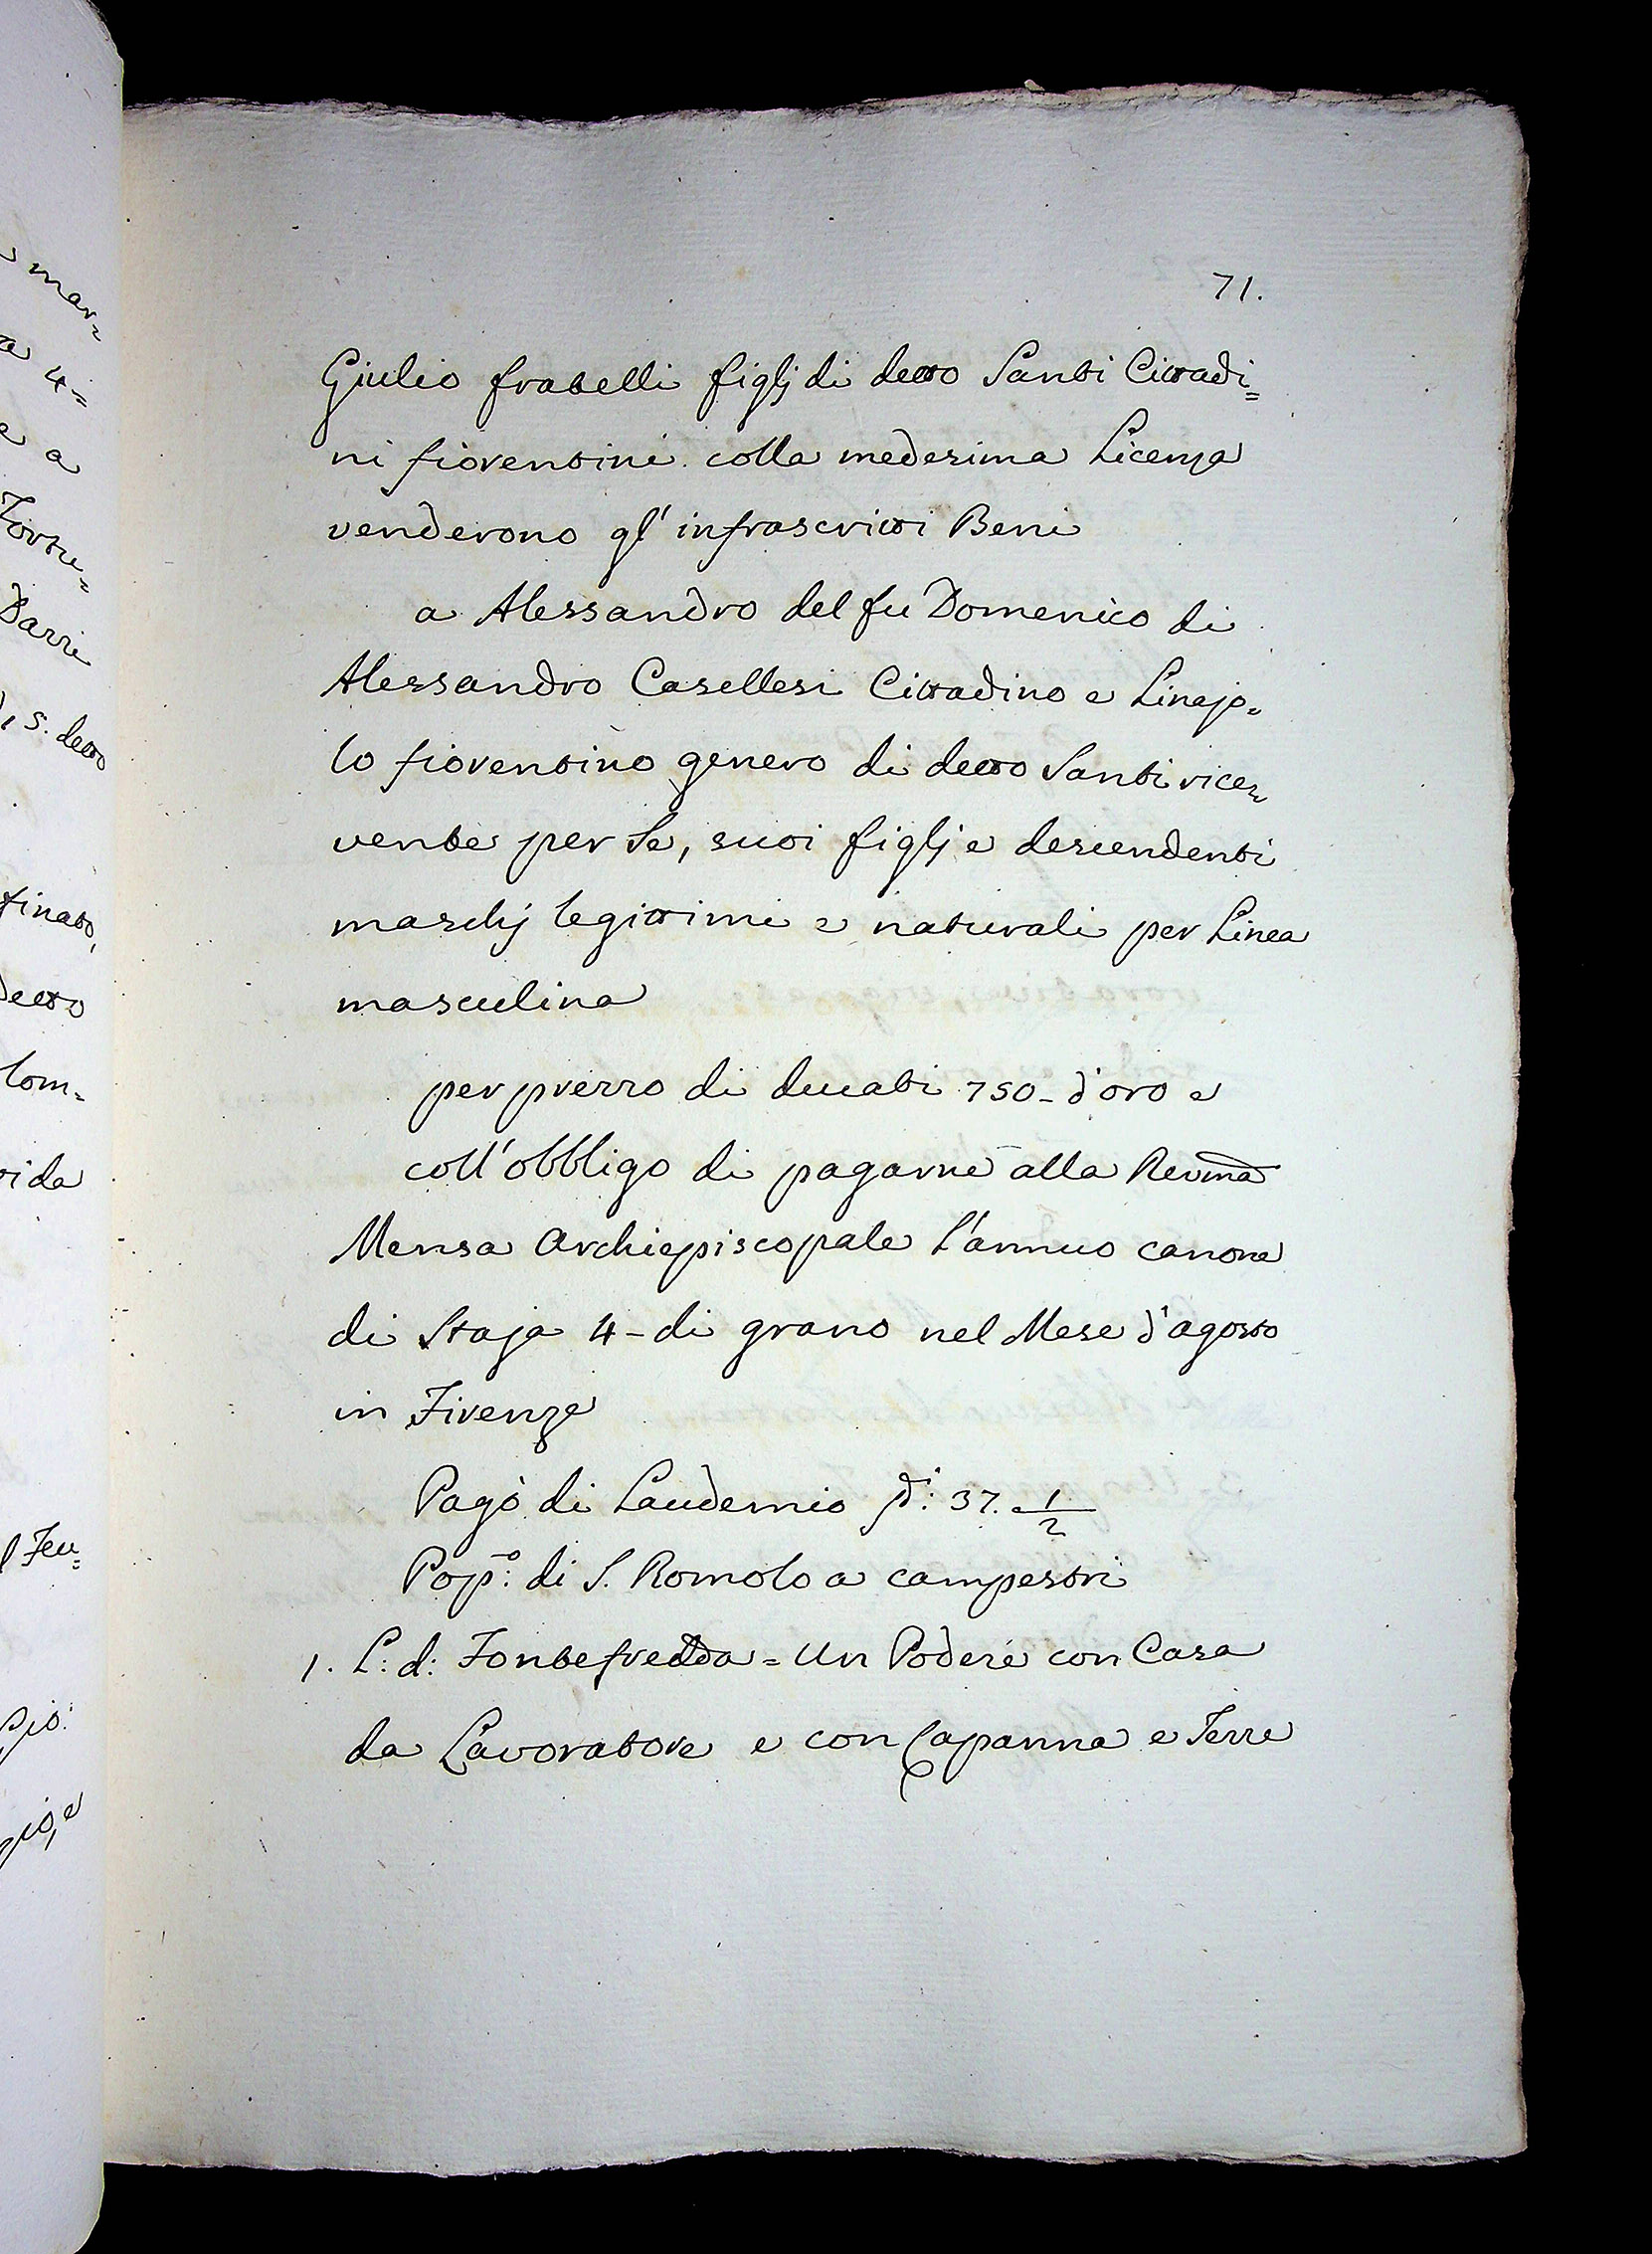 71.
Giulio fratelli figlj di detto Santi Cittadi=
ni fiorentini colla medesima Licenza
venderono gl' infrascritti Beni
a Alessandro del fu Domenico di
Alessandro Casellesi Cittadino e Linajo=
lo fiorentino genero di detto Santi rice=
vente per Se, suoi figlj e descendenti
maschj legittimi e naturali per Linea
masculina
per prezzo di ducati 750- d'oro e
coll'obbligo di pagarne alla Revma
Mensa Archiepiscopale l'annuo canone
di Staja 4- di grano nel Mese d'agosto
in Firenze
Pagò di Laudemio 37. 1/2
Pop:o di S. Romolo a campestri
1. L: d: Fontefredda = Un Podere con Casa
da Lavoratore e con Capanna e Terre
mar=
a 4=
e a
Fortu=
S. detto
detto
l Feu=
Gio: